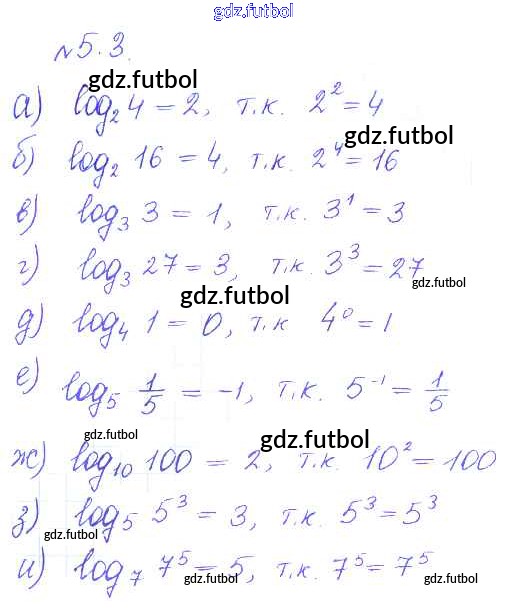 gdz.futbol
№5.3.
gdz.futbol
а) log₂ 4 = 2, т.к. 2² = 4
gdz.futbol
б) log₂ 16 = 4, т.к. 2⁴ = 16
в) log₃ 3 = 1, т.к. 3¹ = 3
г) log₃ 27 = 3, т.к. 3³ = 27
gdz.futbol
gdz.futbol
д) log₄ 1 = 0, т.к 4⁰ = 1
е) log₅ 1/5 = -1, т.к. 5⁻¹ = 1/5
gdz.futbol
gdz.futbol
ж) log₁₀ 100 = 2, т.к. 10² = 100
з) log₅ 5³ = 3, т.к. 5³ = 5³
gdz.futbol
и) log₇ 7⁵ = 5, т.к. 7⁵ = 7⁵
gdz.futbol
gdz.futbol